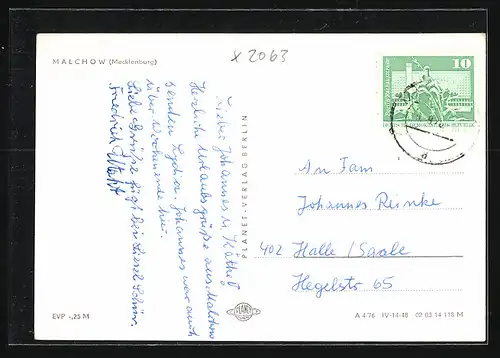 MALCHOW (Mecklenburg)
x 2063
10
Lieber Johannes u. Käthe!
Herzliche Urlaubsgrüße aus Malchow
senden Lydia. Johannes war auch
über Wochenende hier.
Liebe Grüße fügt bei Liesel
Friedrich
PLANET-VERLAG BERLIN
PLANET
An Fam
Johannes Reinke
402 Halle/Saale
Hegelstr 65
EVP -,25 M
A 4/76 IV-14-48 02 03 14 118 M